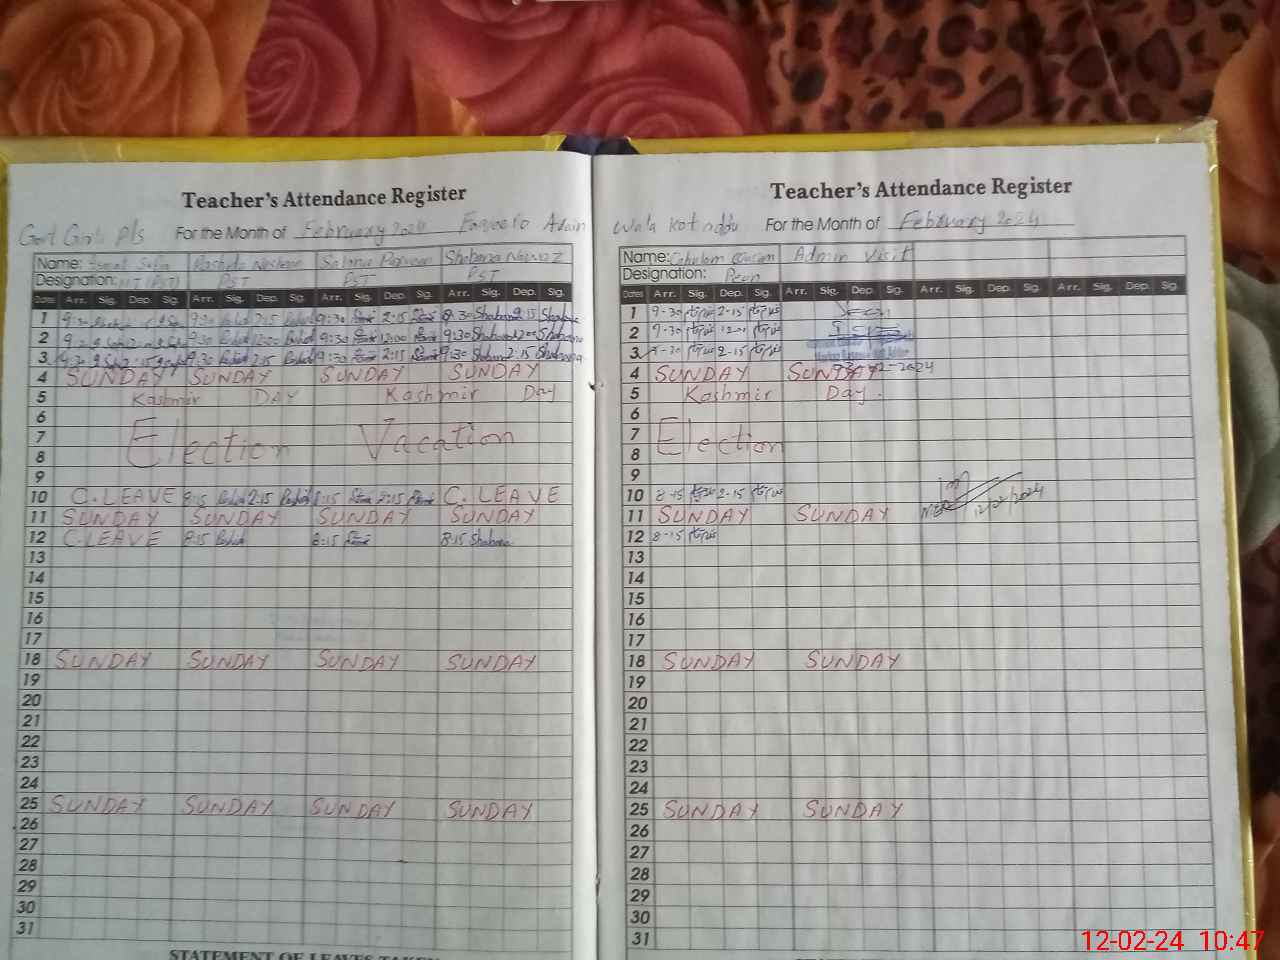 Teacher's Attendance Register
Govt Girls Pls For the Month of February 2024 Faqeero Adain
Name: Ismat Sofia Rashida Nasheen Salma Parveen Shabana Nawaz
Designation: (PST) PST PST PST
Dates Arr. Sig. Dep. Sig. Arr. Sig. Dep. Sig. Arr. Sig. Dep. Sig. Arr. Sig. Dep. Sig.
1 9:30 2:15 9:30 2:15 9:30 Shabana 2:15 Shabana
2 9:30 12:00 9:30 12:00 9:30 Shabana 12:00 Shabana
3 9:30 2:15 9:30 2:15 9:30 2:15 9:30 Shabana 2:15 Shabana
4 SUNDAY SUNDAY SUNDAY SUNDAY
5 Kashmir DAY Kashmir Day
6
7 Election Vacation
8
9
10 C.LEAVE 8:15 2:15 8:15 2:15 C.LEAVE
11 SUNDAY SUNDAY SUNDAY SUNDAY
12 C.LEAVE 8:15 8:15 8:15 Shabana
13
14
15
16
17
18 SUNDAY SUNDAY SUNDAY SUNDAY
19
20
21
22
23
24
25 SUNDAY SUNDAY SUNDAY SUNDAY
26
27
28
29
30
31
STATEMENT OF LEAVES TAKEN
Teacher's Attendance Register
Wala Kot addu For the Month of February 2024
Name: Ghulam Qasim Admin Visit
Designation: Peon
Dates Arr. Sig. Dep. Sig. Arr. Sig. Dep. Sig. Arr. Sig. Dep. Sig. Arr. Sig. Dep. Sig.
1 9-30 2-15
2 9-30 12-00
3 9-30 2-15
4 SUNDAY SUNDAY
5 Kashmir Day.
6
7 Election
8
9
10 8-15 2-15
11 SUNDAY SUNDAY 12/02/2024
12 8-15
13
14
15
16
17
18 SUNDAY SUNDAY
19
20
21
22
23
24
25 SUNDAY SUNDAY
26
27
28
29
30
31
12-02-24 10:47